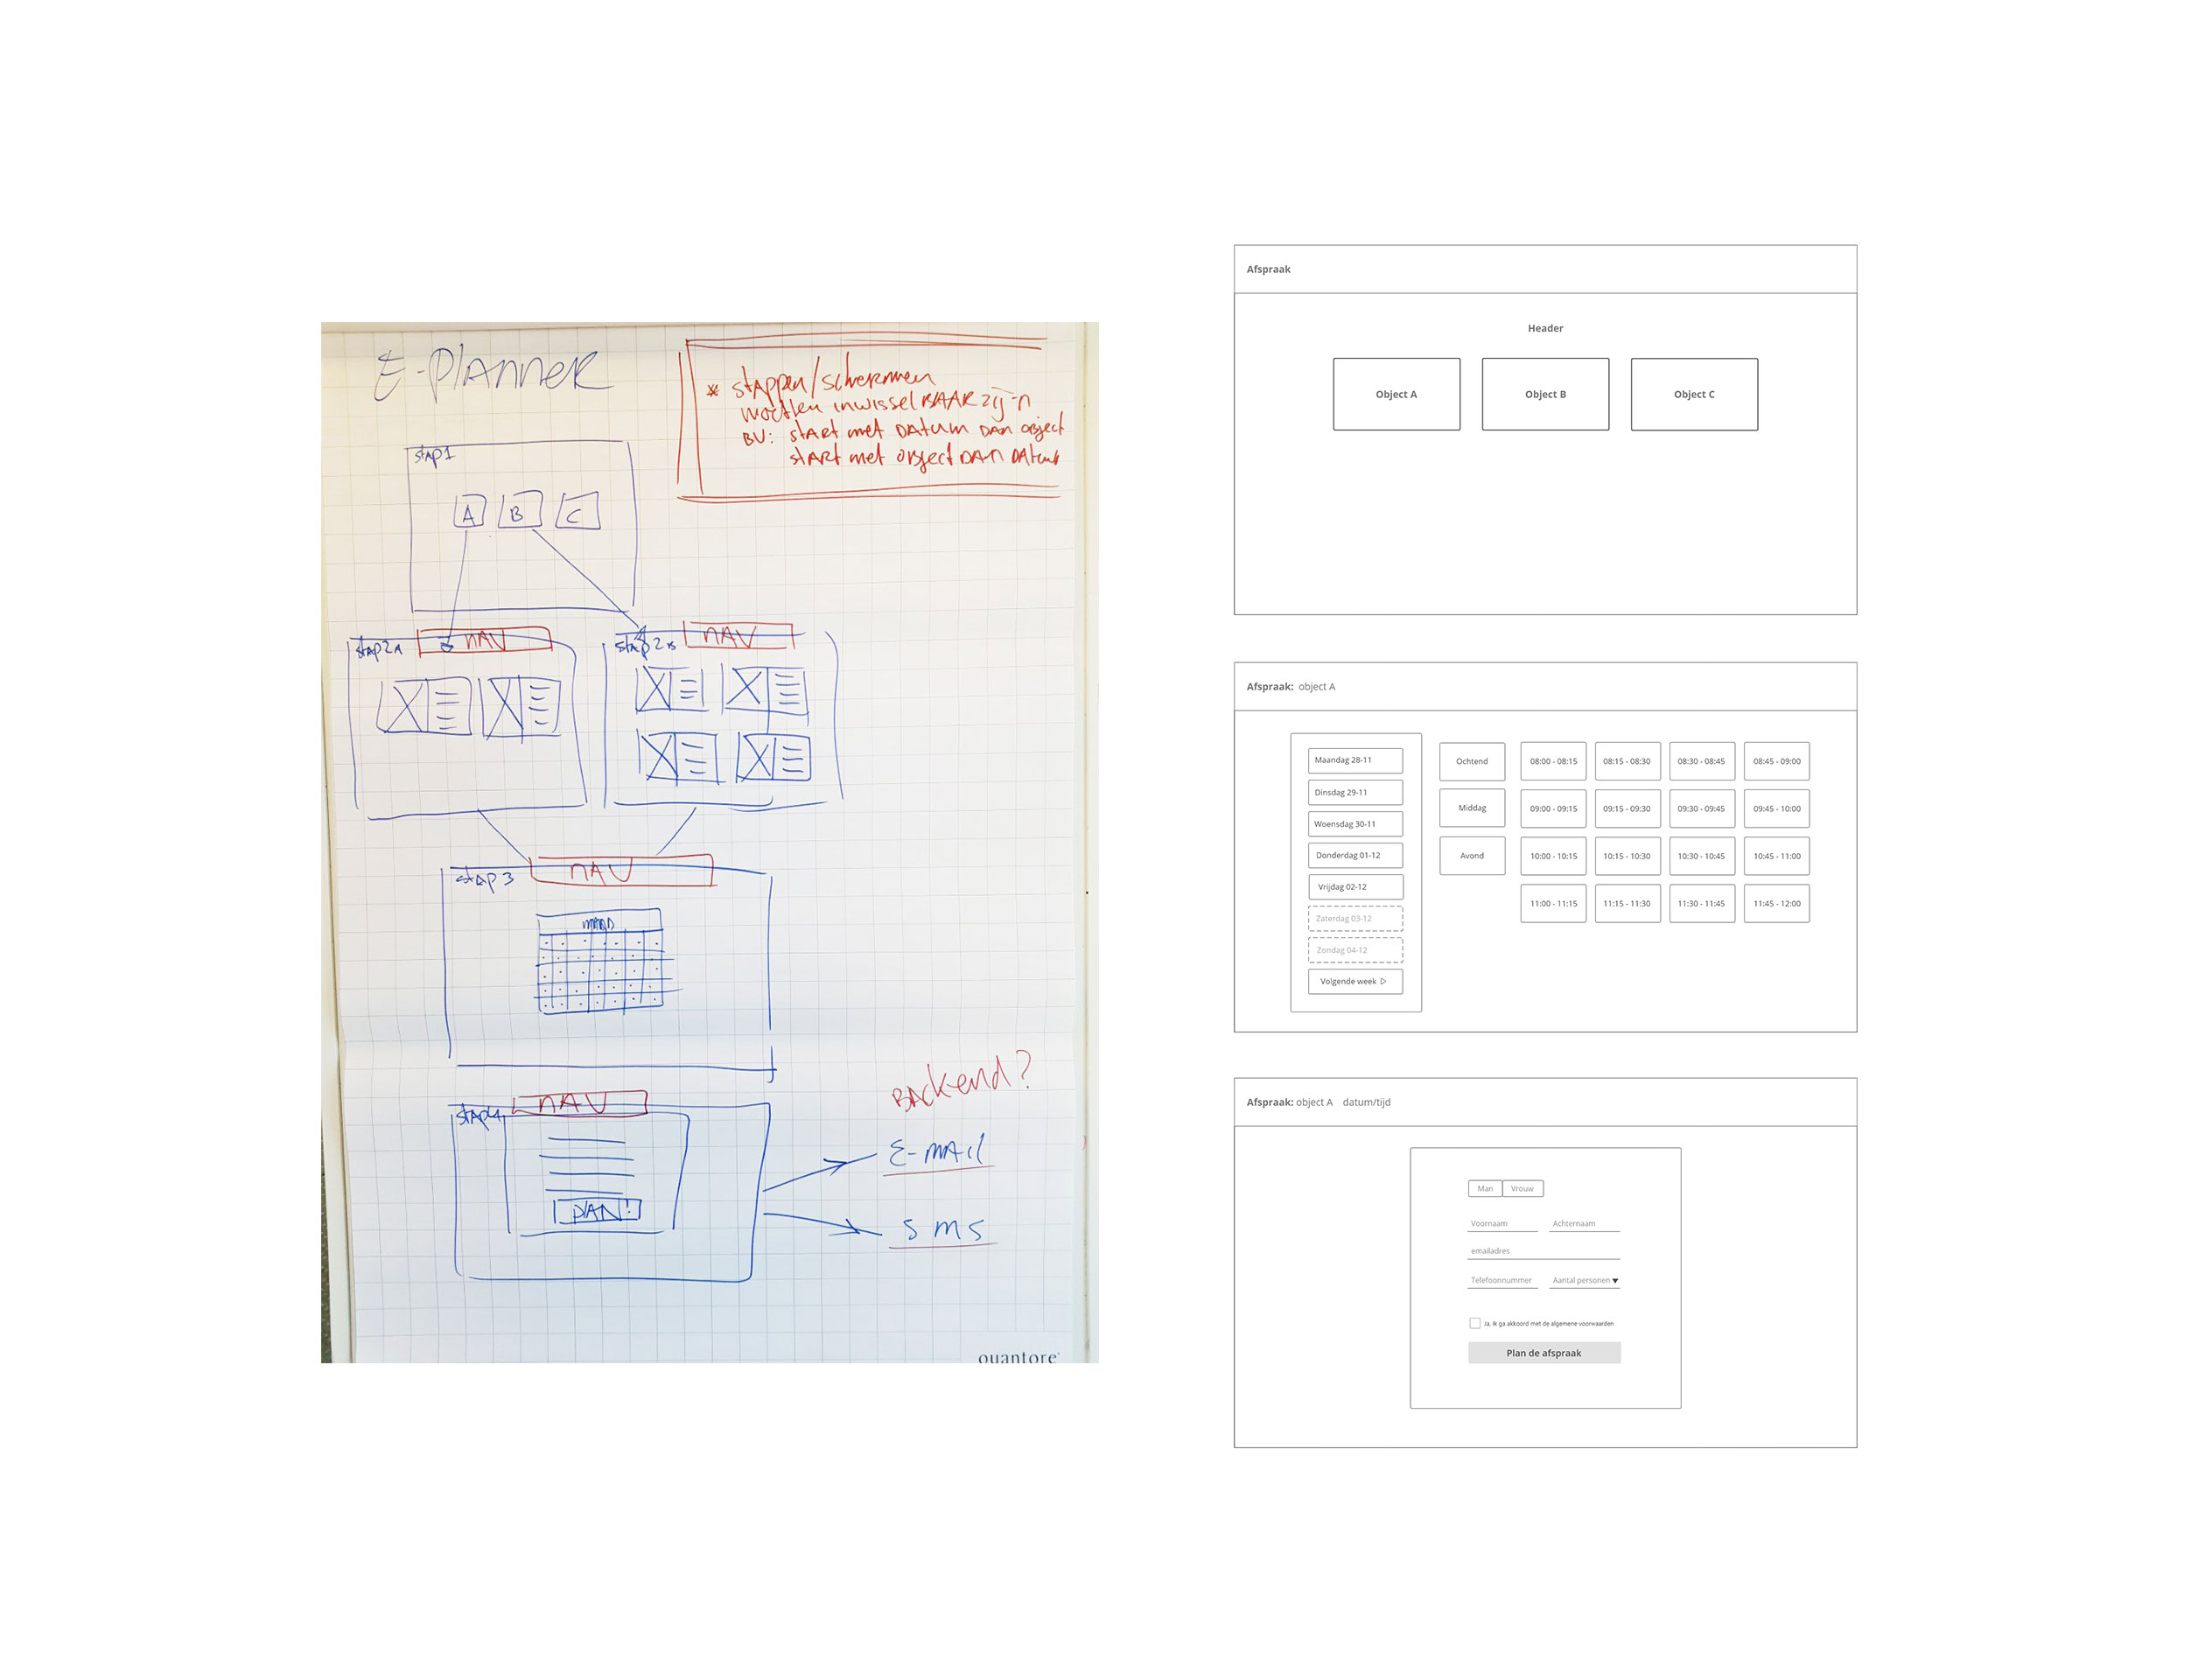 E-PLANNER
* stappen/schermen
moeten inwisselBAAR zijn
BV: stARt met DATum DAN object
stARt met object DAN DAtum
stap1
A B C
stap2A nAV
stap2B nAV
stap3 nAV
MAAND
stap4 nAV
PLAN!
BAckend?
E-mAil
sms
quantore
Afspraak
Header
Object A Object B Object C
Afspraak: object A
Maandag 28-11
Dinsdag 29-11
Woensdag 30-11
Donderdag 01-12
Vrijdag 02-12
Zaterdag 03-12
Zondag 04-12
Volgende week
Ochtend 08:00 - 08:15 08:15 - 08:30 08:30 - 08:45 08:45 - 09:00
Middag 09:00 - 09:15 09:15 - 09:30 09:30 - 09:45 09:45 - 10:00
Avond 10:00 - 10:15 10:15 - 10:30 10:30 - 10:45 10:45 - 11:00
11:00 - 11:15 11:15 - 11:30 11:30 - 11:45 11:45 - 12:00
Afspraak: object A datum/tijd
Man Vrouw
Voornaam Achternaam
emailadres
Telefoonnummer Aantal personen
Ja, ik ga akkoord met de algemene voorwaarden
Plan de afspraak